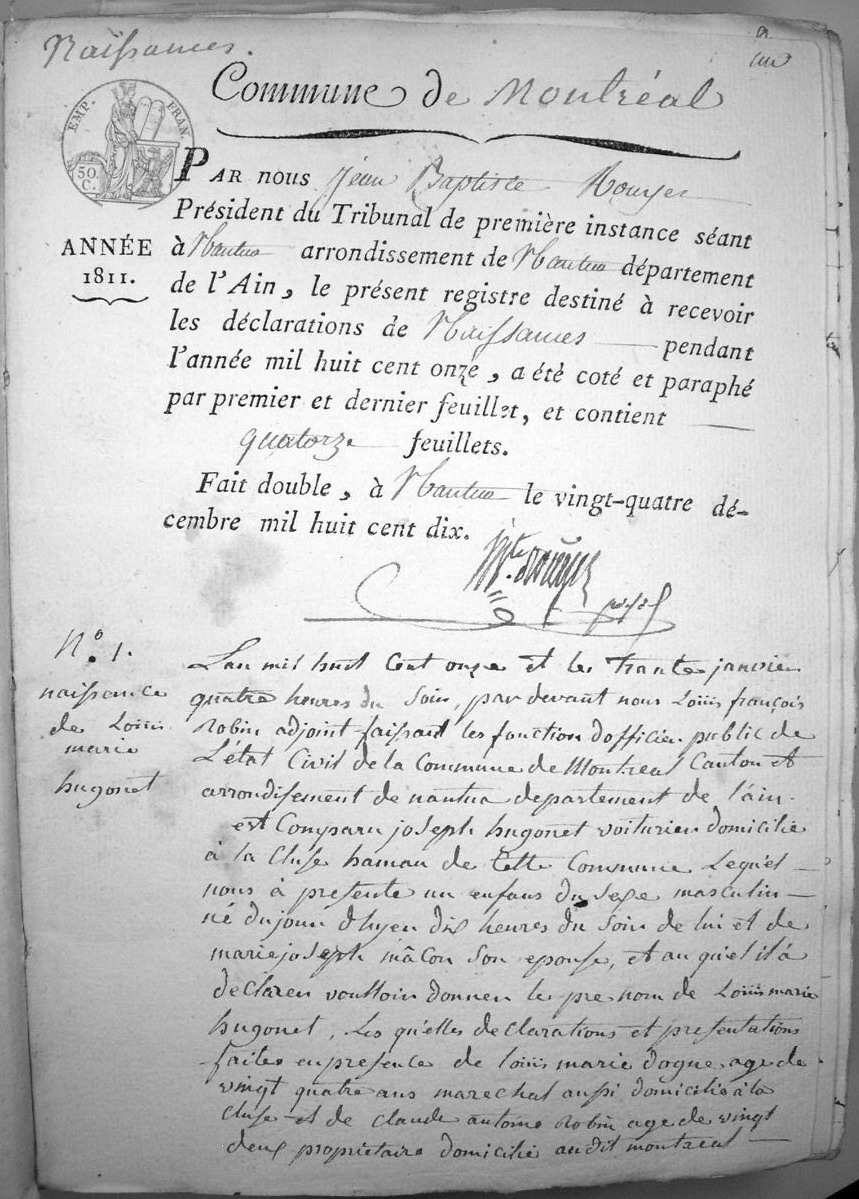 Naissances.
un
Commune de Montréal
EMP. FRAN
50.
C.
ANNÉE
1811.
PAR nous Jean Baptiste Rouyer
Président du Tribunal de première instance séant
à Nantua arrondissement de Nantua département
de l'Ain, le présent registre destiné à recevoir
les déclarations de Naissances pendant
l'année mil huit cent onze, a été coté et paraphé
par premier et dernier feuillet, et contient
quatorze feuillets.
Fait double, à Nantua le vingt-quatre dé-
cembre mil huit cent dix.
N.º 1.
naissence
de Louis
marie
hugonet
L'an mil huit Cent onze et les trante janvier
quatre heures du soir, par devant nous Louis françois
Robin adjoint faissant les fonction dofficier public de
L'état Civil de la Commune de Montreal Canton et
arrondissement de nantua departement de l'ain.
est Comparu joseph hugonet voiturier domicilié
à la Cluse hamau de Cette Commune Lequ'el
nous à presente un enfans du sexe masculin
né dujour d'hyer dix heures du soir de lui et de
marie joseph mâcon son epouse, et auqu'el il à
declarer voulloir donner le pre nom de Louis marie
hugonet, Les qu'elles declarations et presentations
faites en presence de louis marie dogne age de
vingt quatre ans marechal aussi domicilié à la
Cluse et de claude antoine Robin age de vingt
deux propriétaire domicilié audit montreal